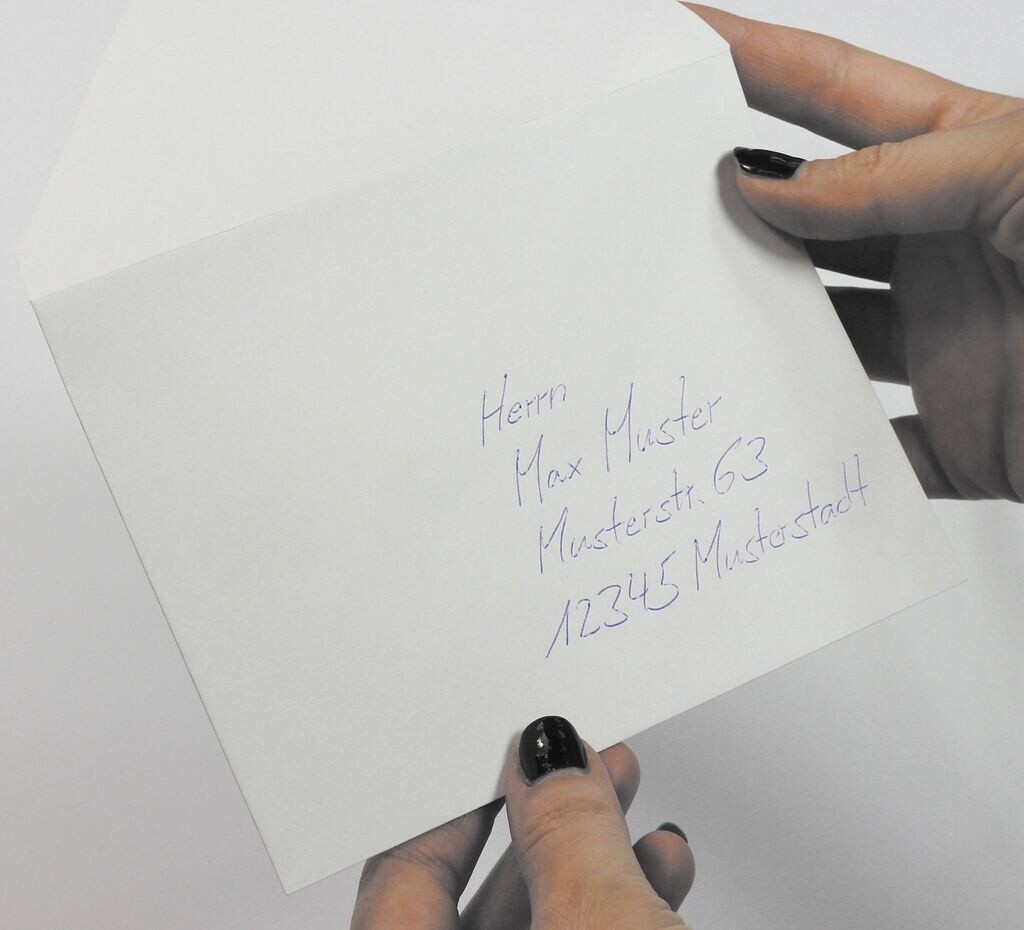 Herrn
Max Muster
Musterstr. 63
12345 Musterstadt